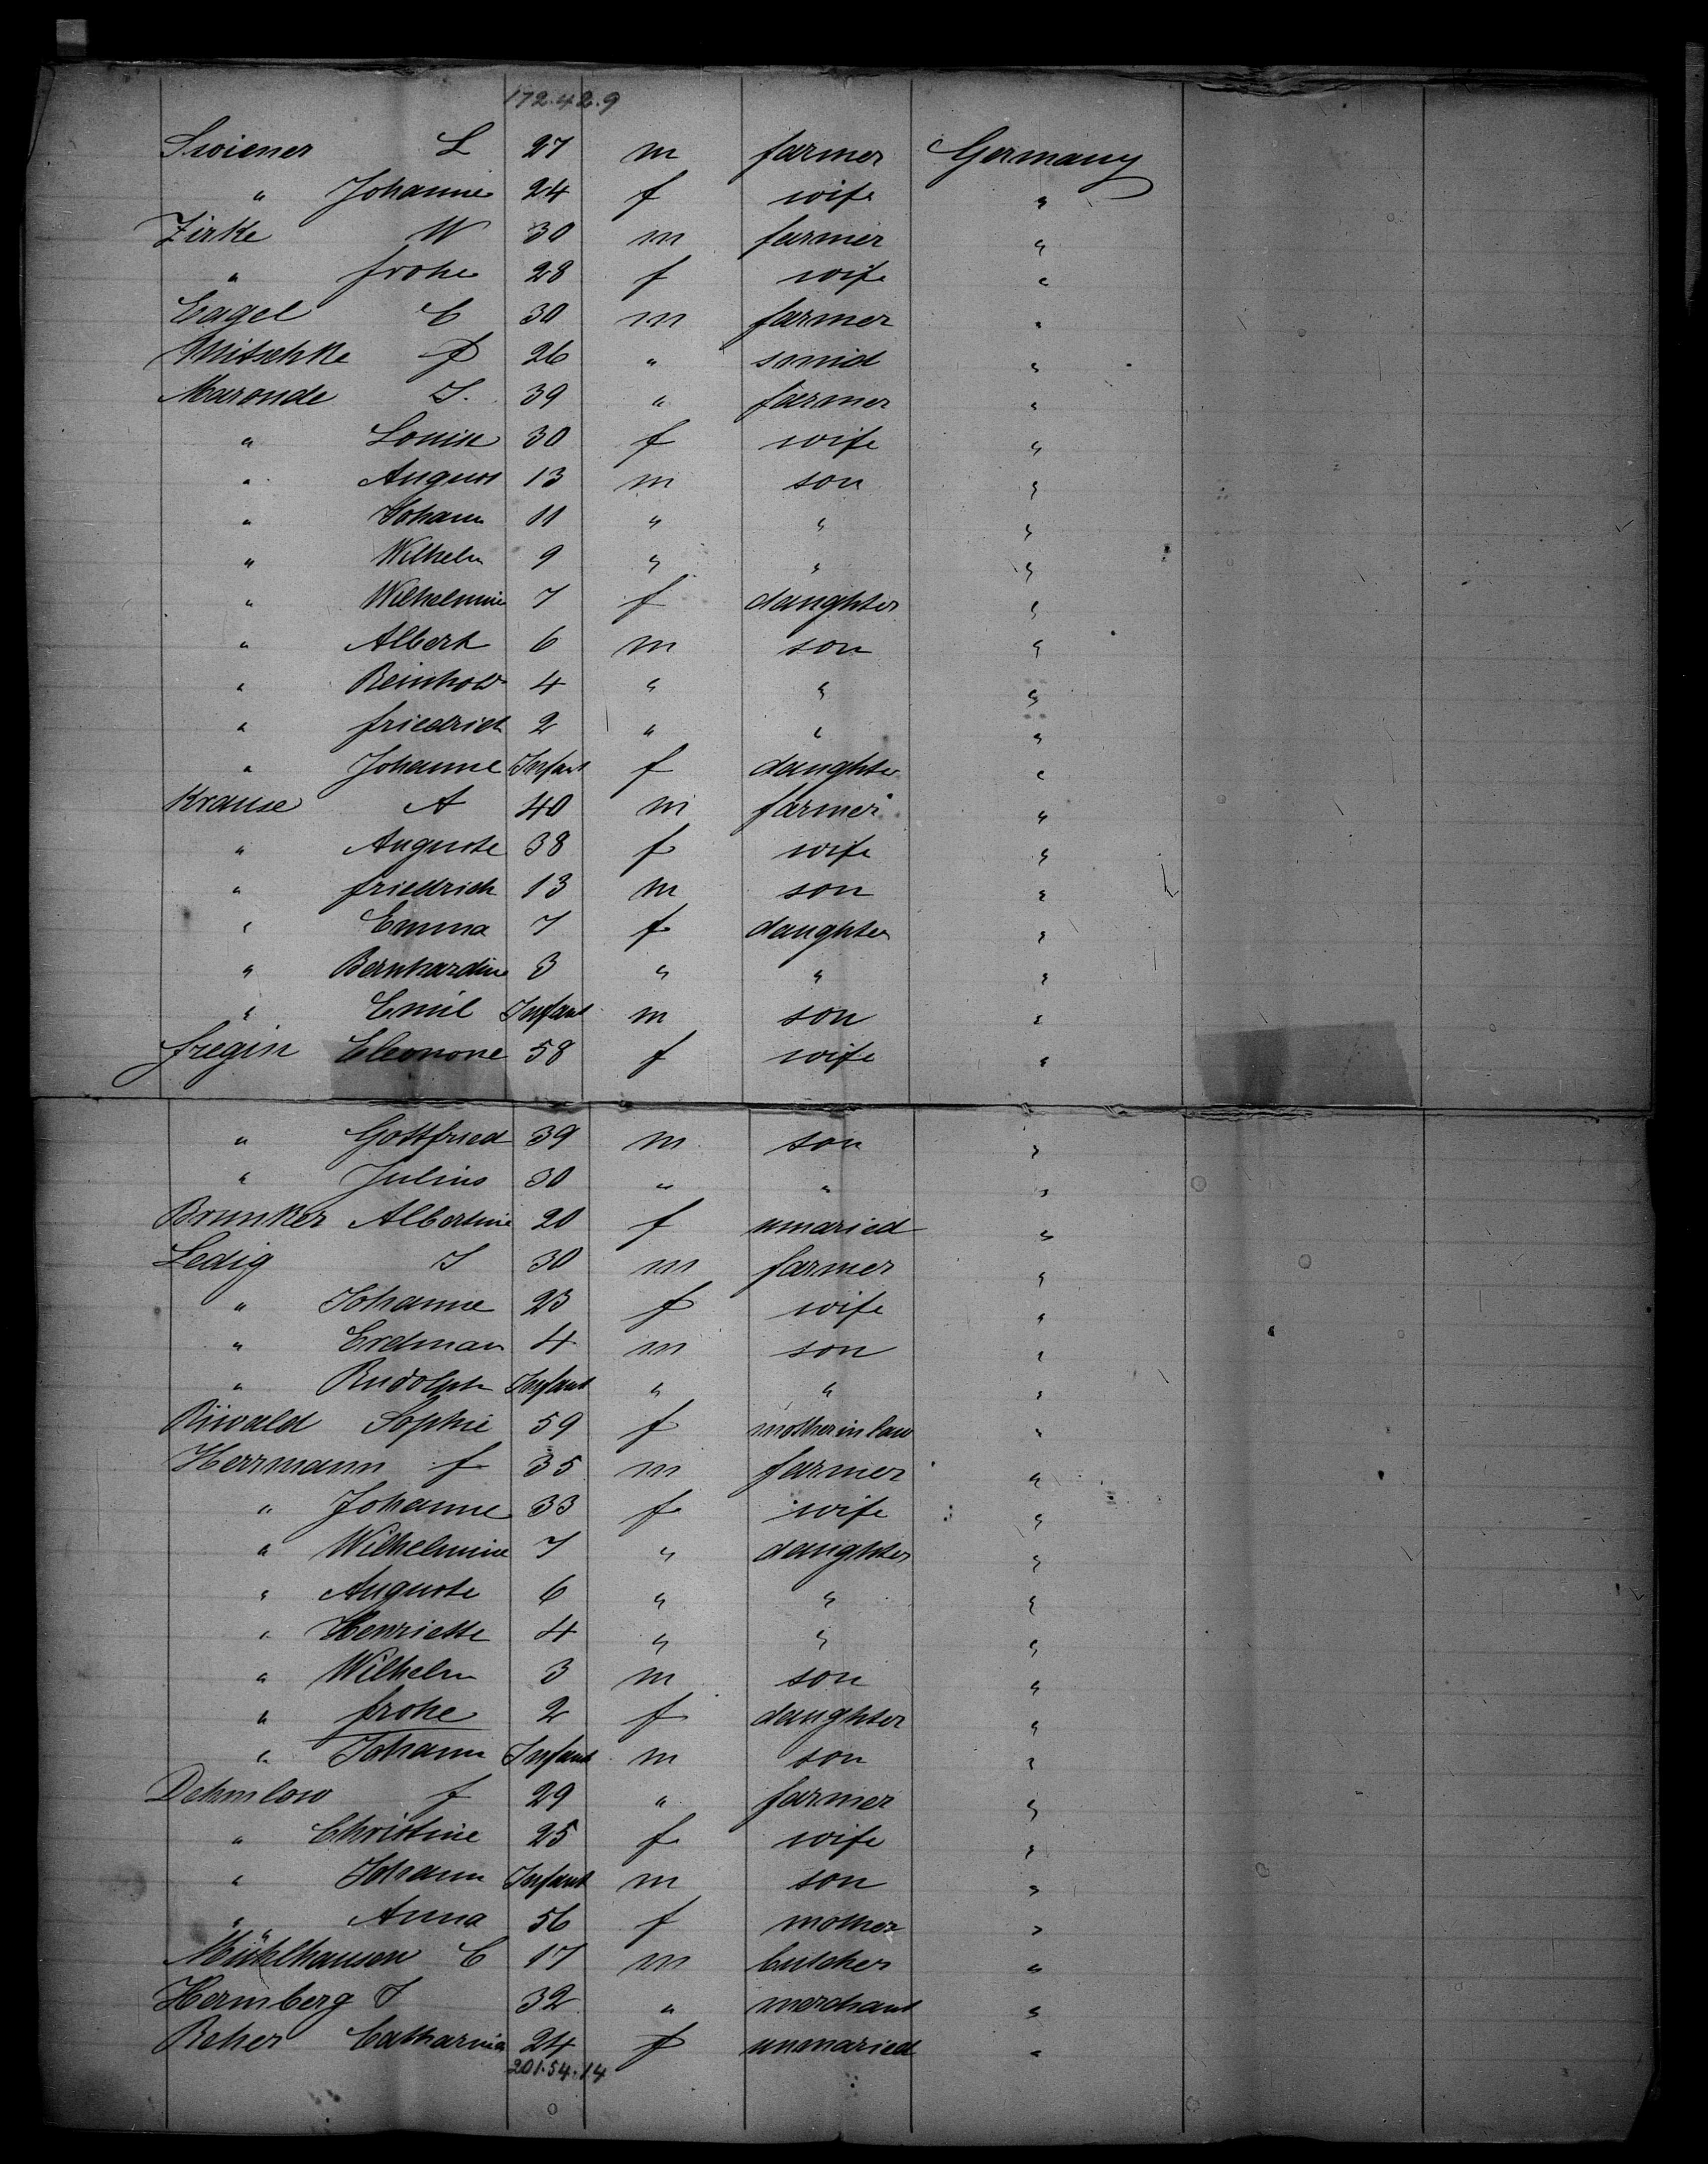 172.42.9
Swiener L 27 m farmer Germany
" Johanne 24 f wife "
Zirke W 30 m farmer "
" frohe 28 f wife "
Eagel C 30 m farmer "
Mitschke f 26 " smid "
Maronde J. 39 " farmer "
" Louise 30 f wife "
" August 13 m son "
" Johann 11 " " "
" Wilhelm 9 " " "
" Wilhelmine 7 f daughter "
" Albert 6 m son "
" Reinhold 4 " " "
" friedrich 2 " " "
" Johanne Infant f daughter "
Krause A 40 m farmer "
" Auguste 38 f wife "
" friedrich 13 m son "
" Emma 7 f daughter "
" Bernhardine 3 " " "
" Emil Infant m son "
fregin Eleonore 58 f wife "
" Gottfried 39 m son "
" Julius 30 " " "
Brunker Albertine 20 f umaried "
Ledig J 30 m farmer "
" Johanne 23 f wife "
" Erdman 4 m son "
" Rudolph Infant " " "
Riwald Sophie 59 f mother in law "
Herrmann f 35 m farmer "
" Johanne 33 f wife "
" Wilhelmine 7 " daughter "
" Auguste 6 " " "
" Henriette 4 " " "
" Wilhelm 3 m son "
" frohe 2 f daughter "
" Johann Infant m son "
Dehmlow f 29 " farmer "
" Christine 25 f wife "
" Johann Infant m son "
" Anna 56 f mother "
Mühlhausen C 17 m butcher "
Hermberg J 32 " merchant "
Reher Catharina 24 f unmaried "
201.54.14